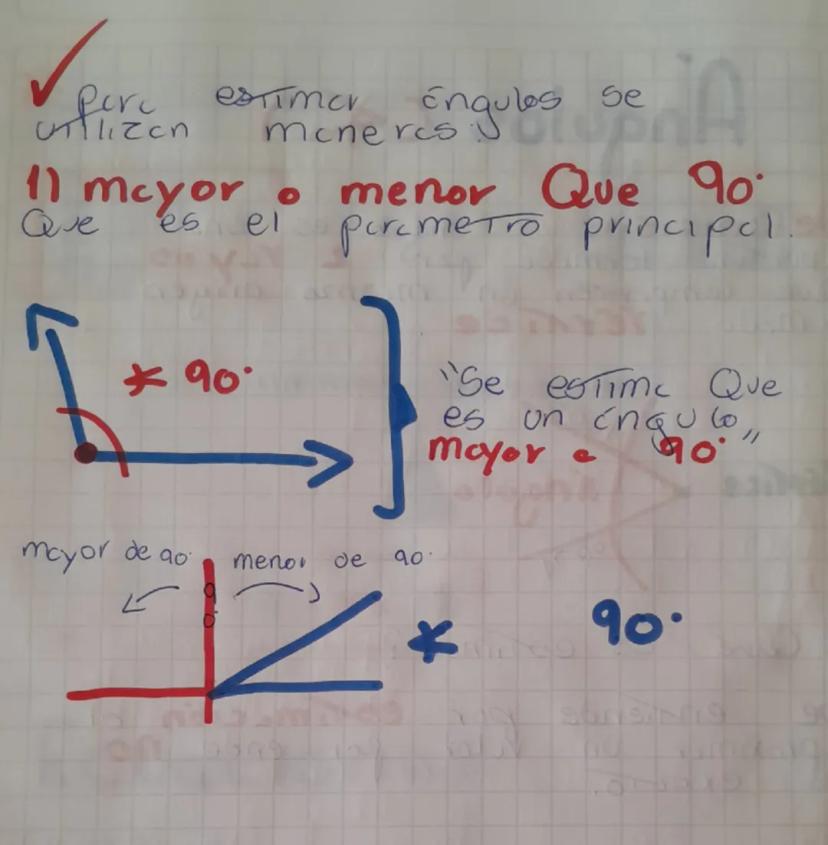 Para estimar ángulos se
utilizan maneras:
1) mayor o menor Que 90°
Que es el parametro principal.
* 90°
"Se estima Que
es un ángulo"
mayor a 90°
mayor de 90° menor de 90°
90
* 90°